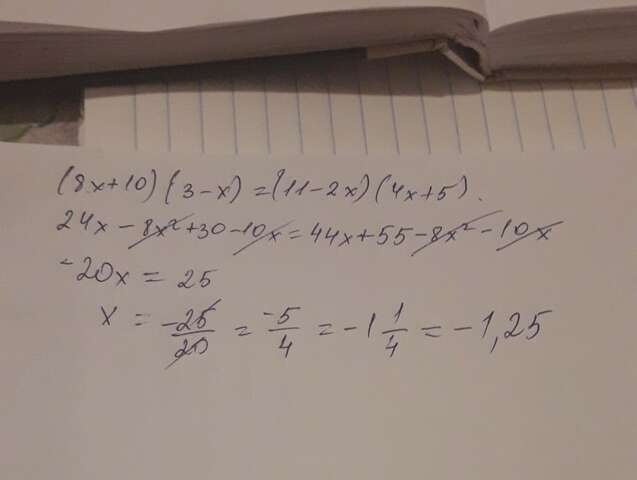 (8x+10)(3-x)=(11-2x)(4x+5).
24x-8x²+30-10x=44x+55-8x²-10x
-20x=25
x=-25/20=-5/4=-1 1/4=-1,25